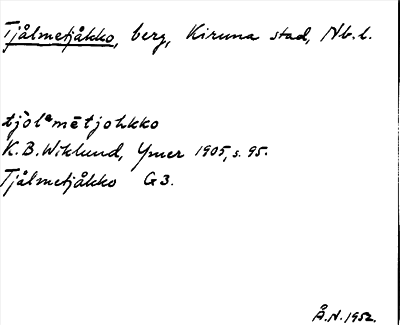 Tjålmetjåkko, berg, Kiruna stad, Nb. l.
tjòlᵉmētjohkko
K. B. Wiklund, Ymer 1905, s. 95.
Tjålmetjåkko G3.
Å. N. 1952.